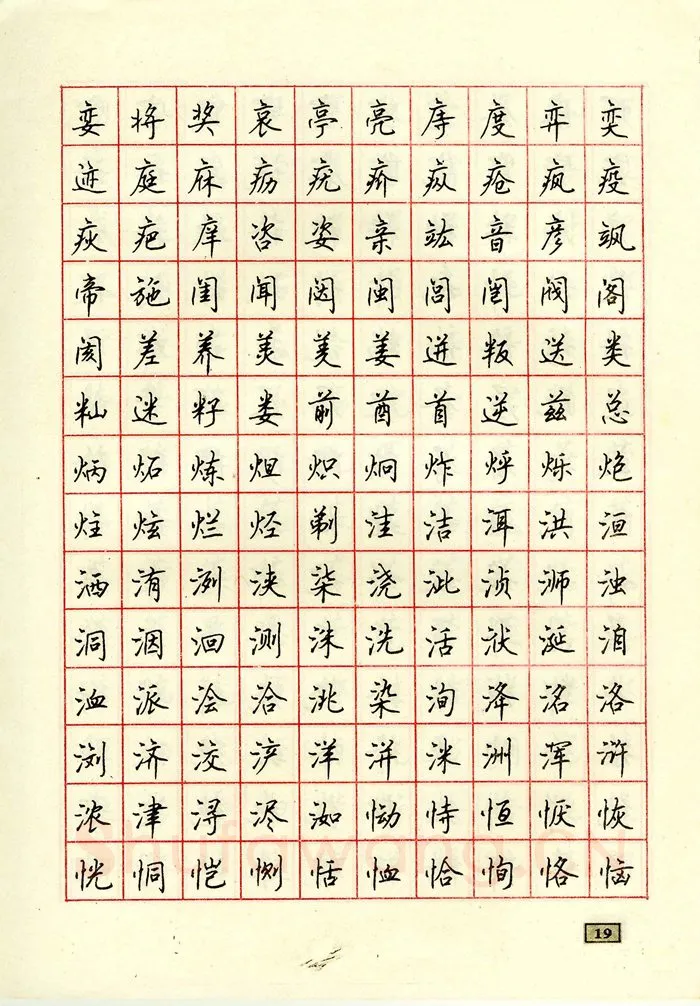 娈将奖哀亭亮庤度弈奕
迹庭庥疬疣疥疭疮疯疫
疢疤庠咨姿亲竑音彦飒
帝施闺闻闼闽闾闿阀阁
阂差养美羑姜迸叛送类
籼迷籽娄前酋首逆兹总
炳炻炼炟炽炯炸烀烁炮
炷炫烂烃剃洼洁洱洪洹
洒洧洌浃柒浇泚浈浉浊
洞洇洄测洙洗活洑涎洎
洫派浍洽洮染洵洚洺洛
浏济洨浐洋洴洣洲浑浒
浓津浔浕洳恸恃恒恹恢
恍恫恺恻恬恤恰恂恪恼
shufawang.cn
19